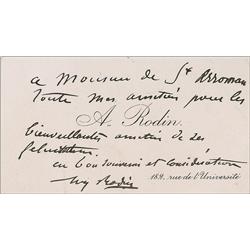 a Monsieur de St Arroman
toute mes amitiés pour les
A. Rodin.
bienveillantes amitiés de ses
en bon souvenir et considération
Rodin
182, rue de l'Université